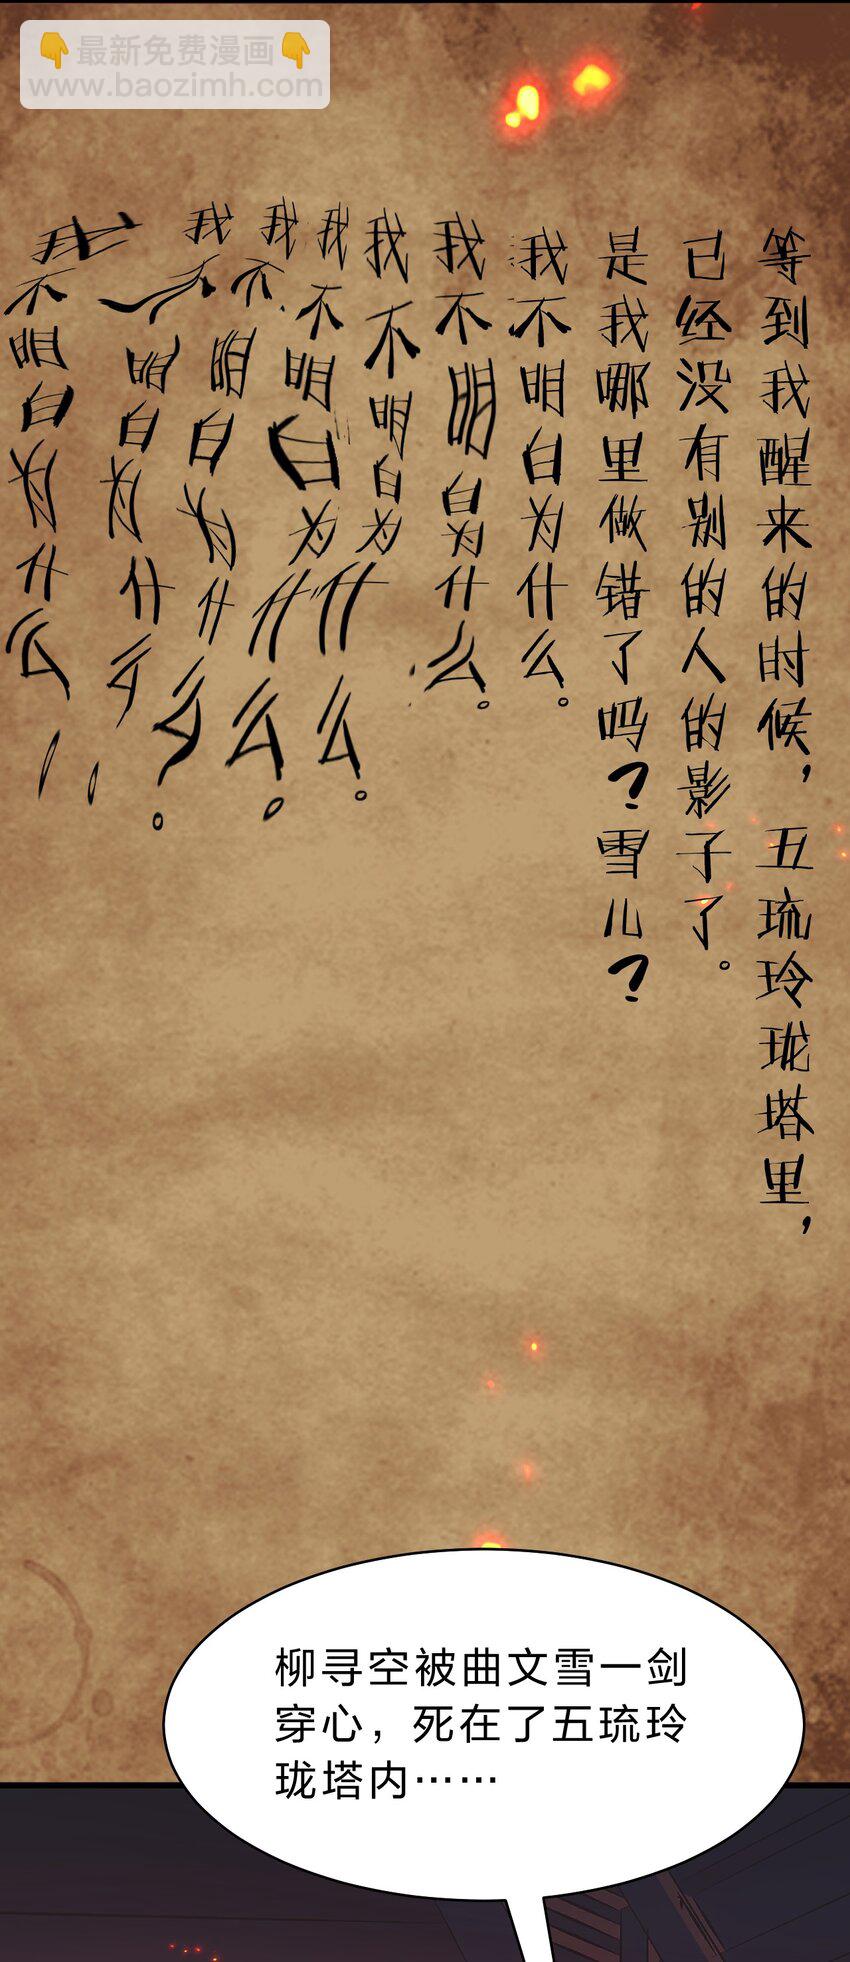 最新免费漫画
www.baozimh.com
等到我醒来的时候，五琉玲珑塔里，
已经没有别的人的影子了。
是我哪里做错了吗？雪儿？
我不明白为什么。
我不明白为什么。
我不明白为什么。
我不明白为什么。
我不明白为什么。
我不明白为什么。
我不明白为什么。
柳寻空被曲文雪一剑
穿心，死在了五琉玲
珑塔内……